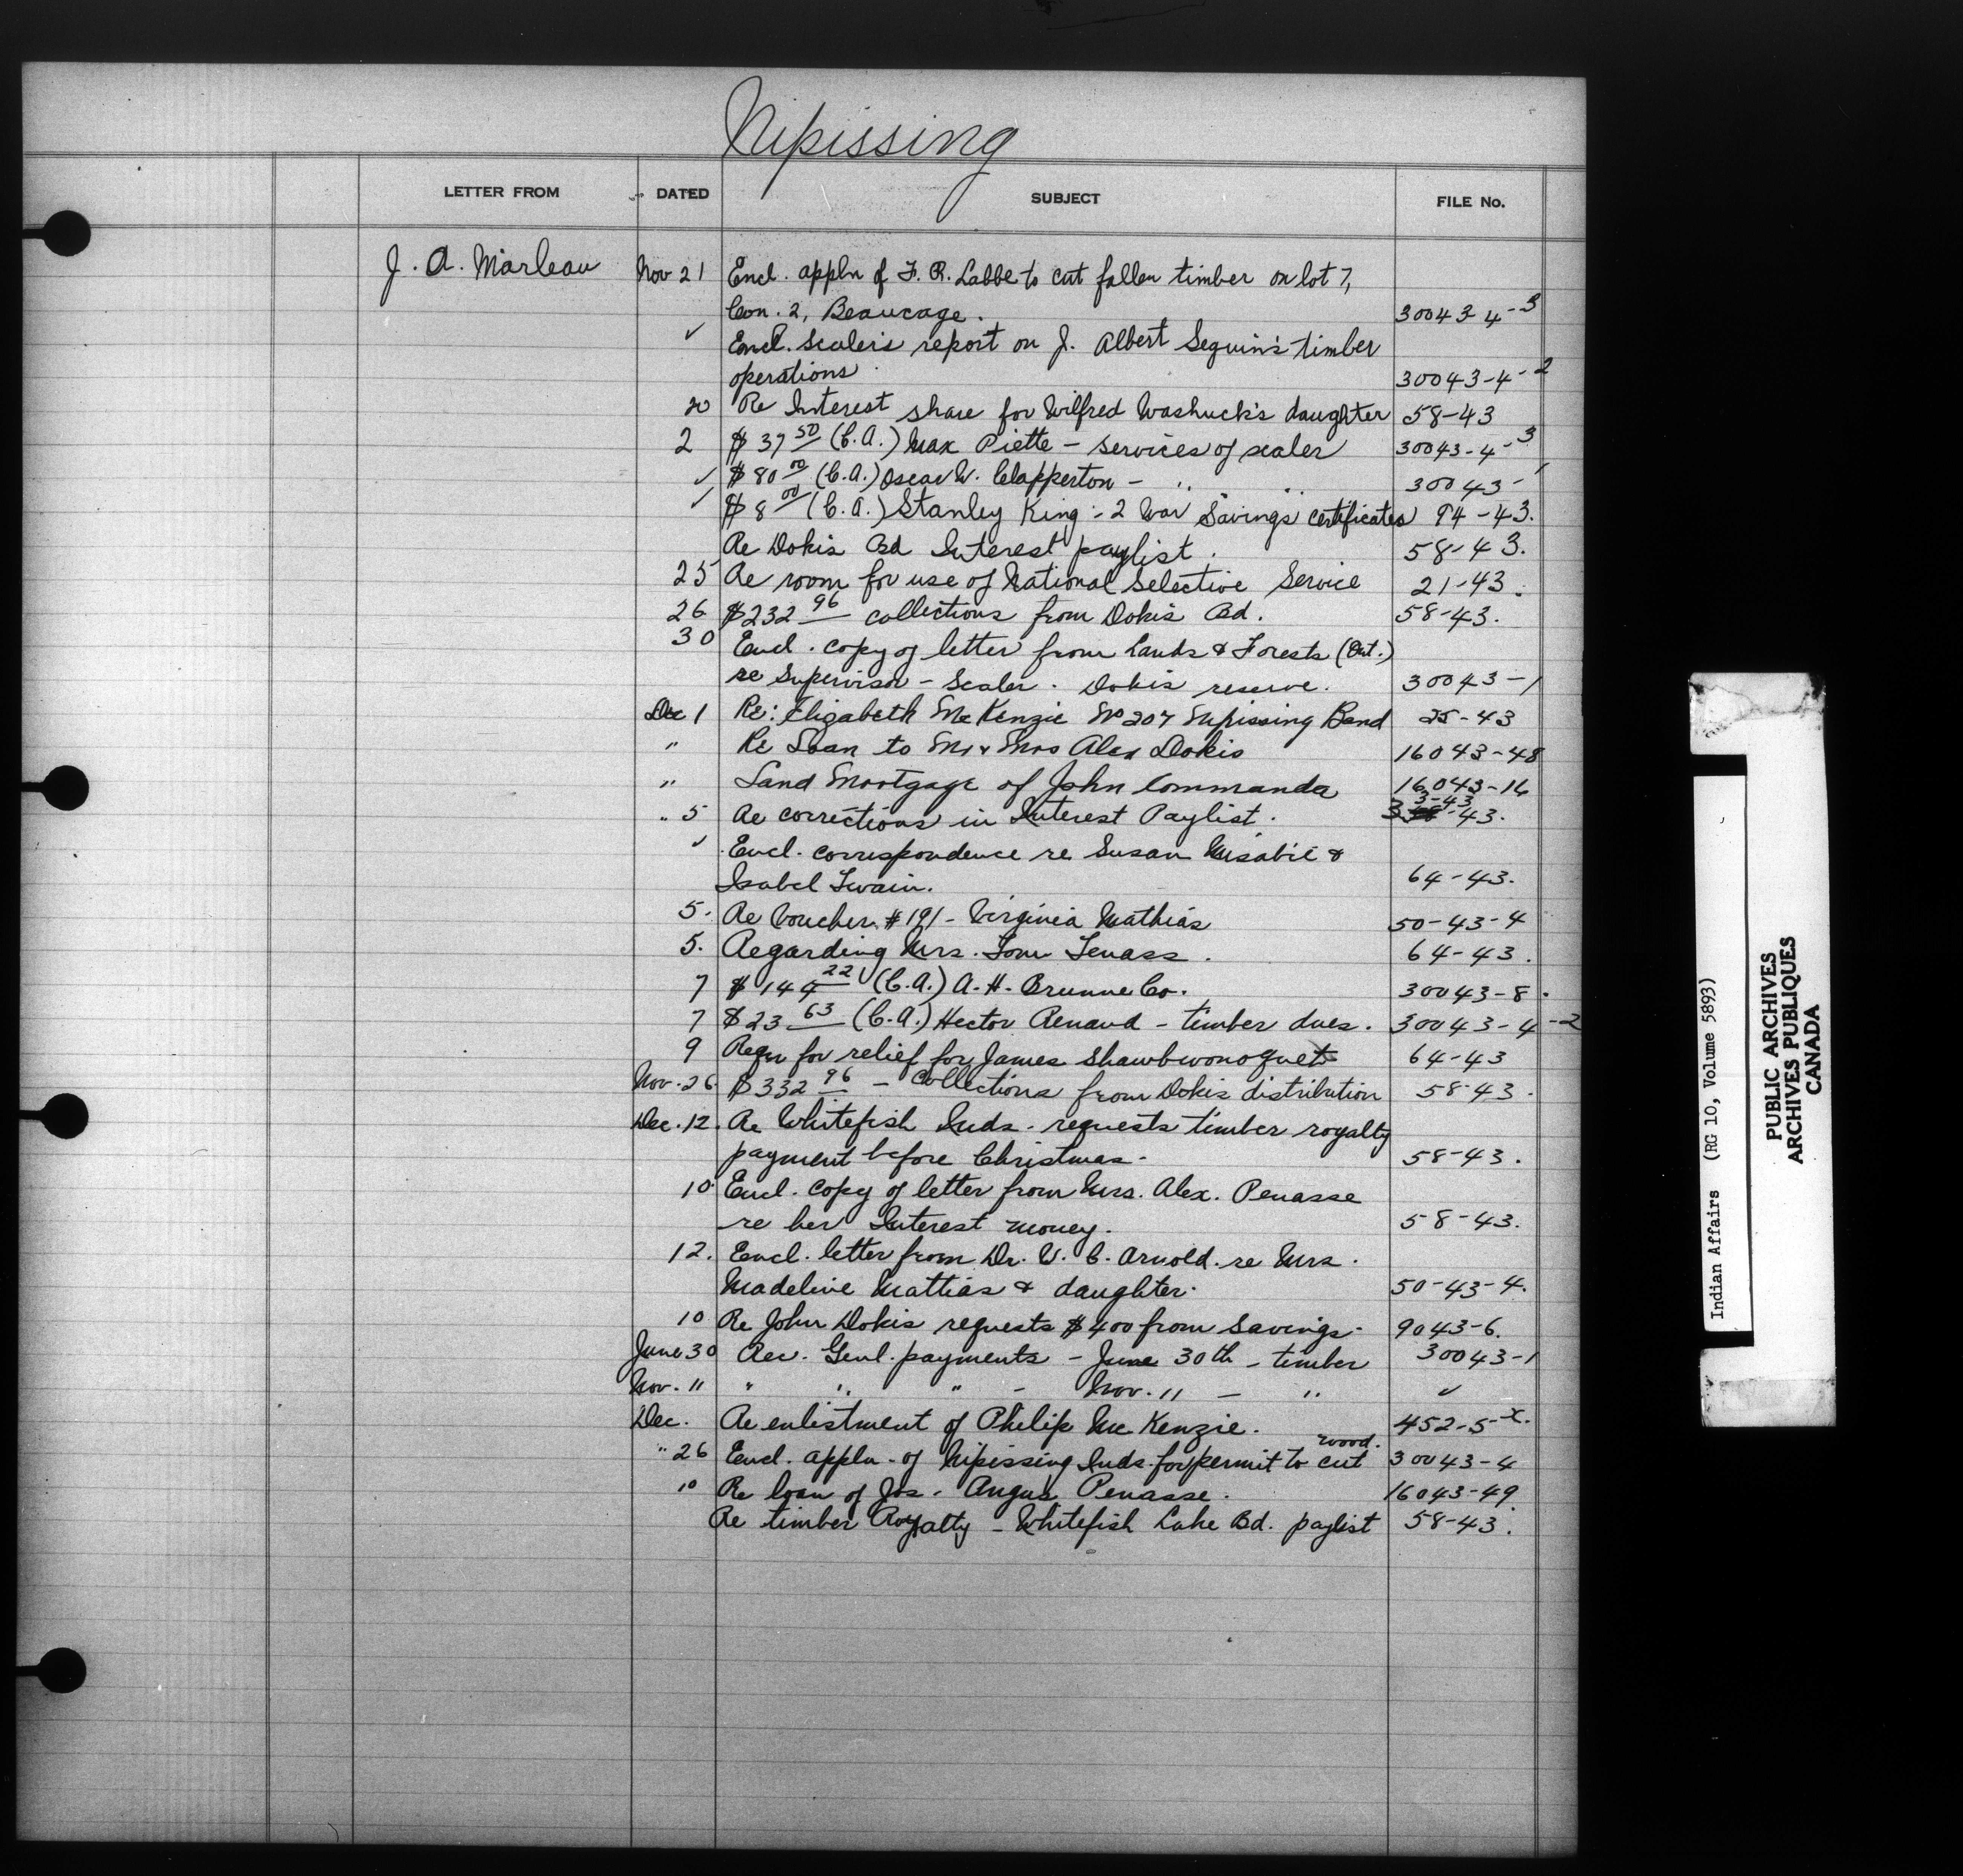 Nipissing
LETTER FROM DATED SUBJECT FILE No.
J. A. Marleau Nov 21 Encl. appln of F. R. Labbe to cut fallen timber on lot 7,
Con. 2, Beaucage. 30043-4-3
✓ Encl. Scaler's report on J. Albert Seguin's timber
operations 30043-4-2
20 Re Interest share for Wilfred Washuck's daughter 58-43
2 $37 50 (C.A.) Max Piette - services of scaler 30043-4-3
✓ $80 00 (C.A.) Oscar W. Clapperton - " " 30043-1
✓ $8 00 (C.A.) Stanley King - 2 War Savings Certificates 94-43.
Re Dokis Bd Interest paylist. 58-43.
25 Re room for use of National Selective Service 21-43.
26 $232 96 collections from Dokis Bd. 58-43.
30 Encl. copy of letter from Lands & Forests (Ont.)
re Supervisor - Scaler. Dokis reserve. 30043-1
Dec 1 Re: Elizabeth McKenzie No 207 Nipissing Band 25-43
" Re Loan to Mr & Mrs Alex Dokis 16043-48
" Land Mortgage of John Commanda 16043-16
" 5 Re corrections in Interest Paylist. 3-43
✓ Encl. correspondence re Susan Misabie &
Isabel Twain. 64-43.
5. Re Voucher #191 - Virginia Mathias 50-43-4
5. Regarding Mrs. Tom Tenass. 64-43.
7 $144 22 (C.A.) A. H. Brunne Co. 30043-8.
7 $23 63 (C.A.) Hector Renaud - timber dues. 30043-4-2
9 Reqn for relief for James Shawbwonoquet 64-43
Nov. 26 $332 96 - Collections from Dokis distribution 58-43.
Dec. 12. Re Whitefish Inds. requests timber royalty
payment before Christmas. 58-43.
10 Encl. copy of letter from Mrs. Alex. Penasse
re her Interest money. 58-43.
12. Encl. letter from Dr. W. C. Arnold. re Mrs.
Madeline Mattias & daughter. 50-43-4.
10 Re John Dokis requests $400 from Savings. 9043-6.
June 30 Rec. Genl. payments - June 30th - timber 30043-1
Nov. 11 " " " - Nov. 11 - " ✓
Dec. Re enlistment of Philip McKenzie. 452-5-x.
" 26 Encl. appln. of Nipissing Inds. for permit to cut wood. 30043-4
10 Re loan of Jos. Angus Penasse. 16043-49.
Re timber Royalty - Whitefish Lake Bd. paylist 58-43.
Indian Affairs (RG 10, Volume 5893)
PUBLIC ARCHIVES
ARCHIVES PUBLIQUES
CANADA